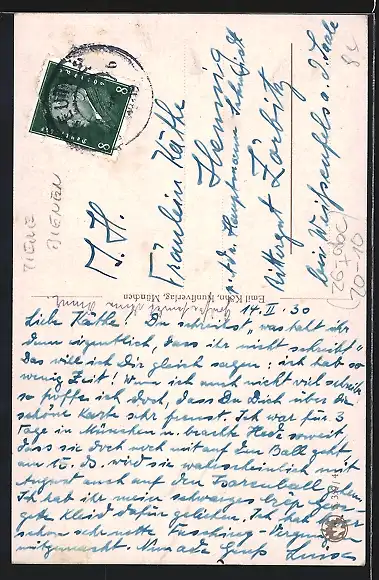 I. H.
Fräulein Käthe
Hennig
p. Adr. Hauptmann
Rittergut Zorbitz
bei Weißenfels a. d. Saale
TIERE
BIENEN
8
8
Emil Köhn, Kunstverlag, München
14. II. 30
Liebe Käthe! Du schreibst „was habt ihr
denn eigentlich, dass ihr nicht schreibt"
Das will ich Dir gleich sagen: ich hab so
wenig Zeit! Wenn ich auch nicht viel schreibe
so hoffe ich doch, dass Du Dich über die
schöne Karte sehr freust. Ich war für 3
Tage in München u. brachte Hede soweit,
dass sie doch noch mit auf den Ball geht,
am 15. ds. wird sie wahrscheinlich mit
August auch auf den gehen.
Ich hab ihr mein schwarzes
Kleid dafür geliehen. Ich hab
schon sehr nette Fasching-Vergnügen
mitgemacht. Nun ade Gruß Luise